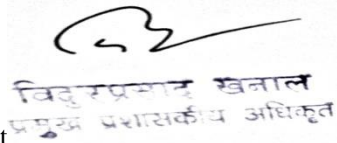 विदुरप्रसाद खनाल
प्रमुख प्रशासकीय अधिकृत
t